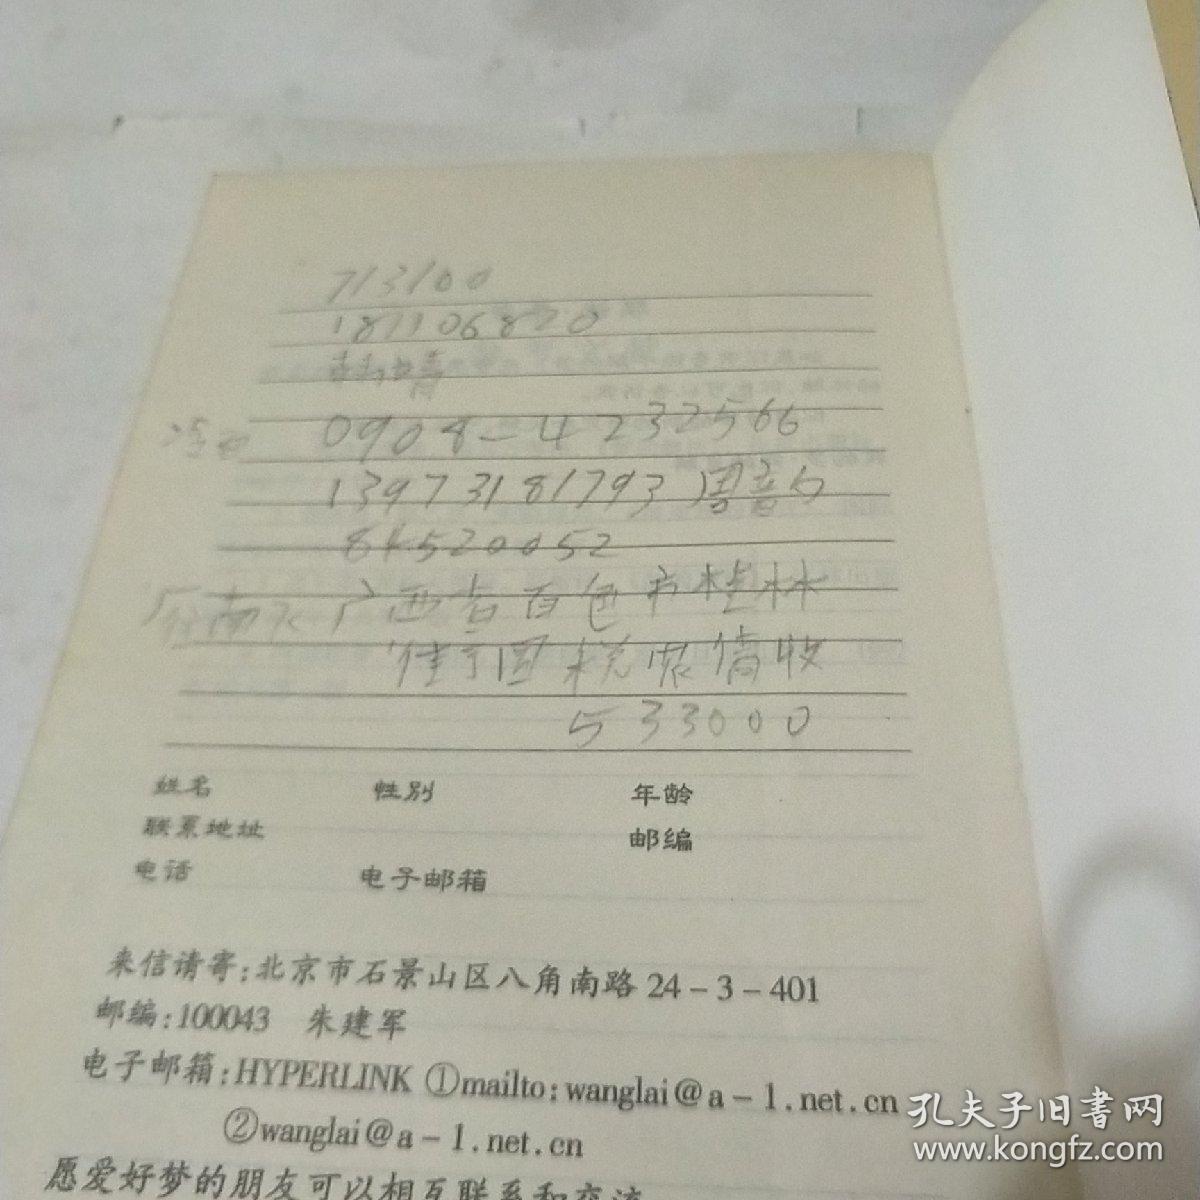 713100
181106820
0908-4232566
13973181793 周音
84520052
广西省百色市桂林
国税 收
533000
姓名 性别 年龄
联系地址 邮编
电话 电子邮箱
来信请寄:北京市石景山区八角南路24-3-401
邮编:100043 朱建军
电子邮箱:HYPERLINK ①mailto:wanglai@a-1.net.cn
②wanglai@a-1.net.cn
愿爱好梦的朋友可以相互联系和交流
孔夫子旧书网
www.kongfz.com